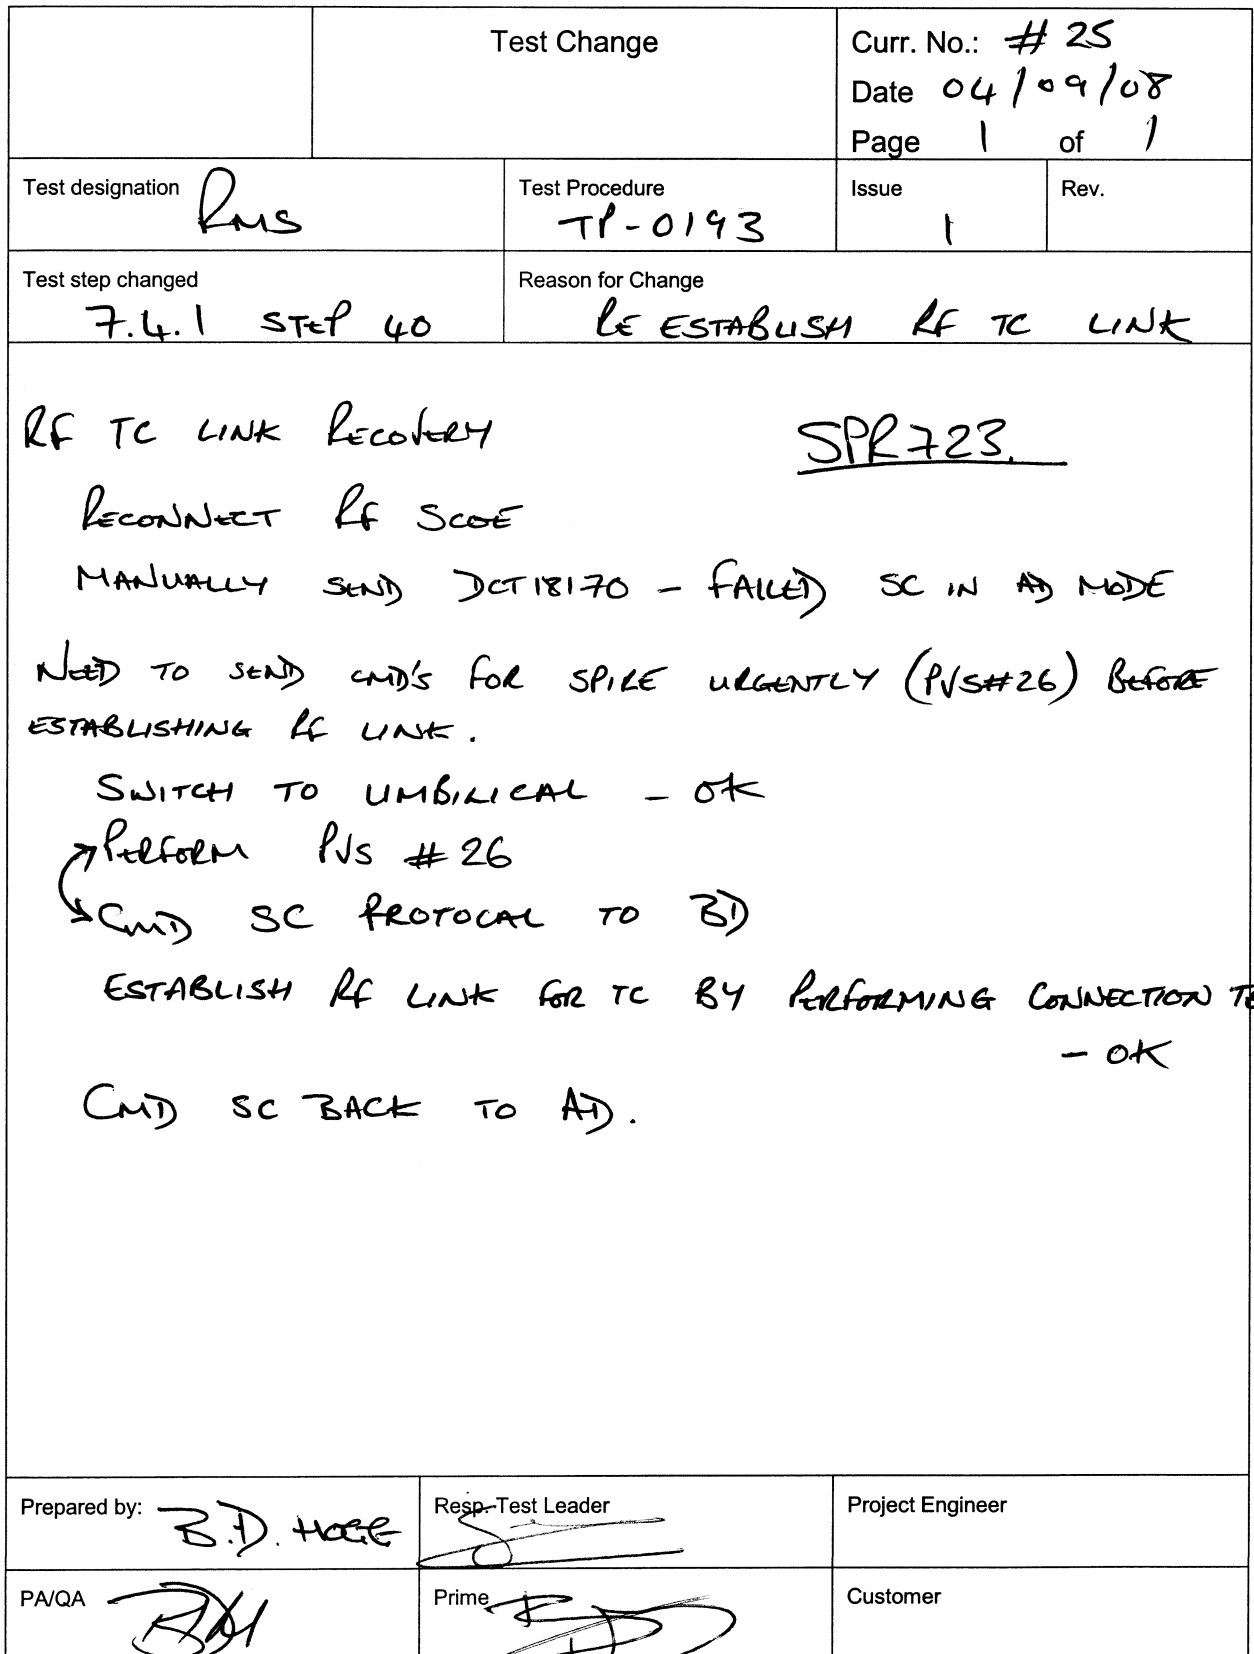 Test Change
Curr. No.: # 25
Date 04/09/08
Page 1 of 1
Test designation RMS
Test Procedure TP-0193
Issue 1
Rev.
Test step changed 7.4.1 STEP 40
Reason for Change RE ESTABLISH RF TC LINK
RF TC LINK RECOVERY
SPR723.
RECONNECT RF SCOE
MANUALLY SEND DCT18170 - FAILED SC IN AD MODE
NEED TO SEND CMD'S FOR SPIRE URGENTLY (PVS#26) BEFORE
ESTABLISHING RF LINK.
SWITCH TO UMBILICAL - OK
PERFORM PVS # 26
CMD SC PROTOCAL TO BD
ESTABLISH RF LINK FOR TC BY PERFORMING CONNECTION
- OK
CMD SC BACK TO AD.
Prepared by: B.D.
Resp. Test Leader
Project Engineer
PA/QA
Prime
Customer